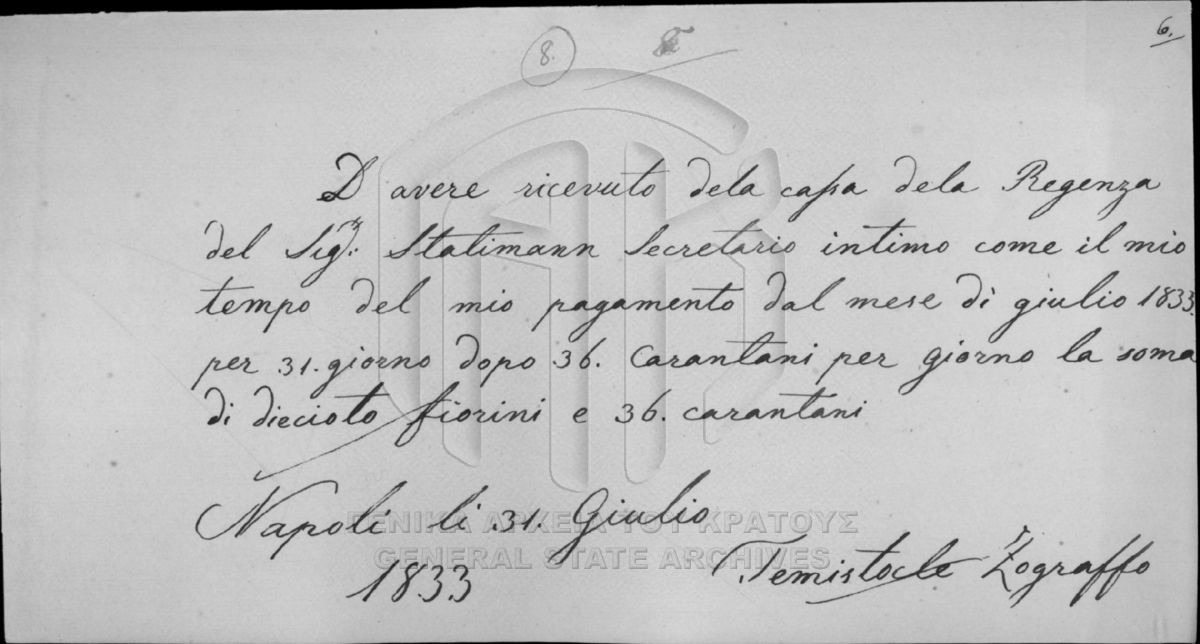 6.
8.
D avere ricevuto dela cassa dela Regenza
del Sigr: Statimann Secretario intimo come il mio
tempo del mio pagamento dal mese di giulio 1833.
per 31. giorno dopo 36. Carantani per giorno la soma
di diecioto fiorini e 36. carantani
Napoli li 31. Giulio
1833
Temistocle Zograffo
ΓΕΝΙΚΑ ΑΡΧΕΙΑ ΤΟΥ ΚΡΑΤΟΥΣ
GENERAL STATE ARCHIVES